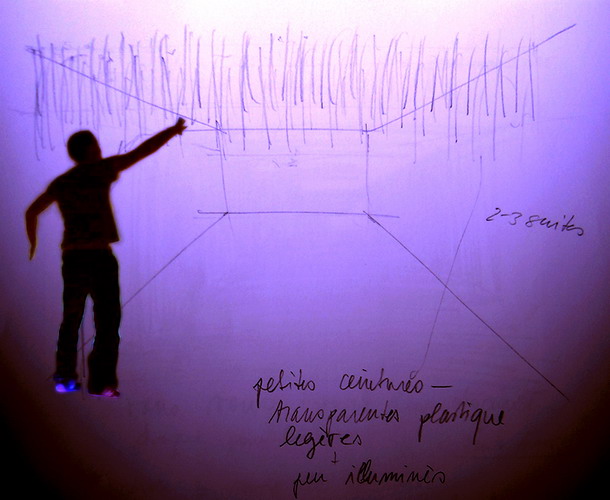 2-3 suites
petites ceintures —
transparentes plastique
legères
peu illuminés